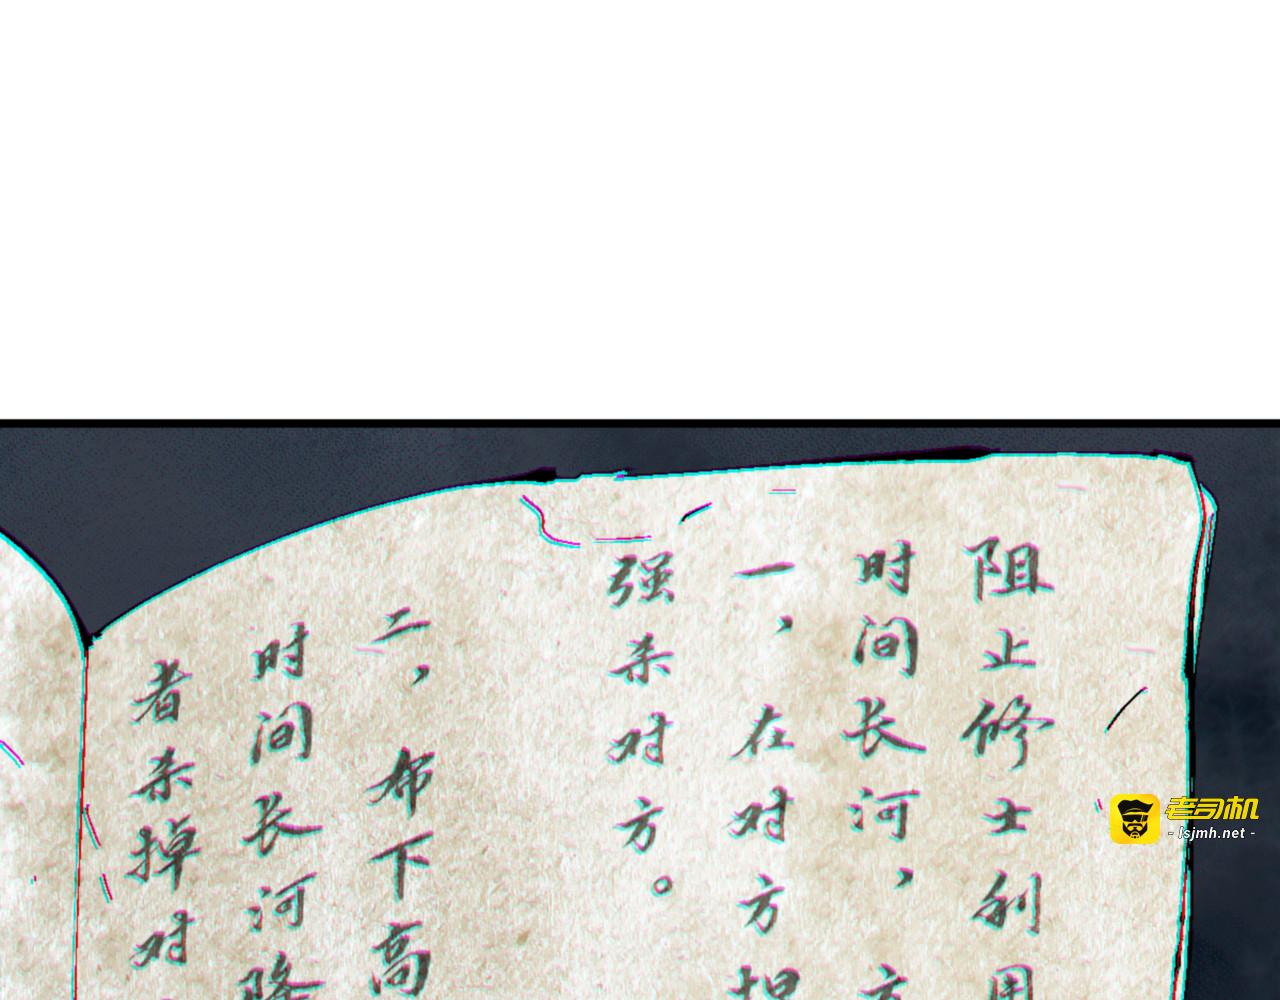 阻止修士利用
时间长河，方
一，在对方
强杀对方。
二，布下高
时间长河降
者杀掉对
老司机
- lsjmh.net -